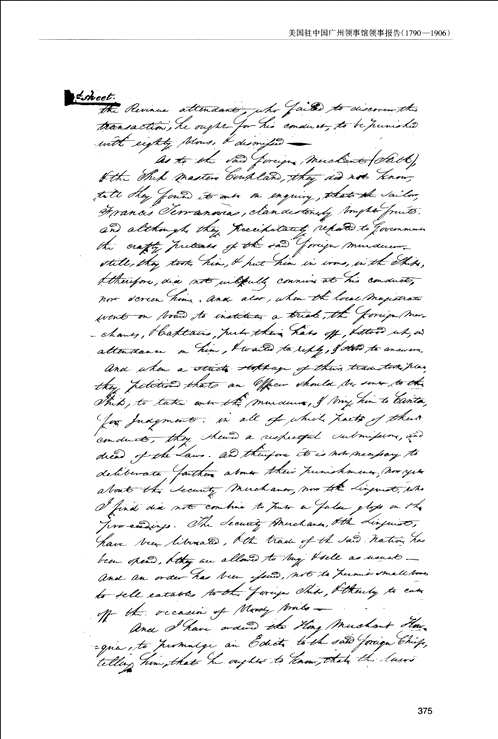 美国驻中国广州领事馆领事报告(1790—1906)
sheet.
the Revenue attendant, who failed to discover the
transaction, he ought for his conduct, to be punished
with eighty blows, & dismissed —
As to the said foreign Merchant
& the Ship Master Copland, they did not know,
till they found it out on enquiry, that the Sailor,
Francis Terranovia, clandestinely bought fruit.
and although they precipitately reported to Government
the crafty pretences of the said foreign murderer
still, they took him, & put him in irons, in the Ship,
& therefore, did not wilfully connive at his conduct,
nor screen him. And also, when the local Magistrate
went on board to institute a trial, the foreign Mer-
-chants, & Captains, put their hats off, & stood up, in
attendance on him, & waited to reply, & to answer.
And when a stoppage of their trade took place,
they petitioned that an Officer should be sent to the
Ship, to take over the murderer, & bring him to Canton
for Judgment. in all of which parts of their
conduct, they shewed a respectful submission, and
dread of the laws. and therefore it is not necessary to
deliberate farther about their punishment, nor yet
about the Security Merchant, nor the Linguist, who
I find did not combine to put a false gloss on the
proceedings. The Security Merchant, & the Linguist,
have been liberated, & the trade of the said Nation has
been opened, & they are allowed to buy & sell as usual —
and an order has been issued, not to permit small boats
to sell eatables to the foreign Ships, & thereby to cut
off the occasion of bloody broils —
And I have ordered the Hong Merchant How-
=qua, to promulge an Edict to the said foreign Chief,
telling him, that he ought to know, that the laws
375